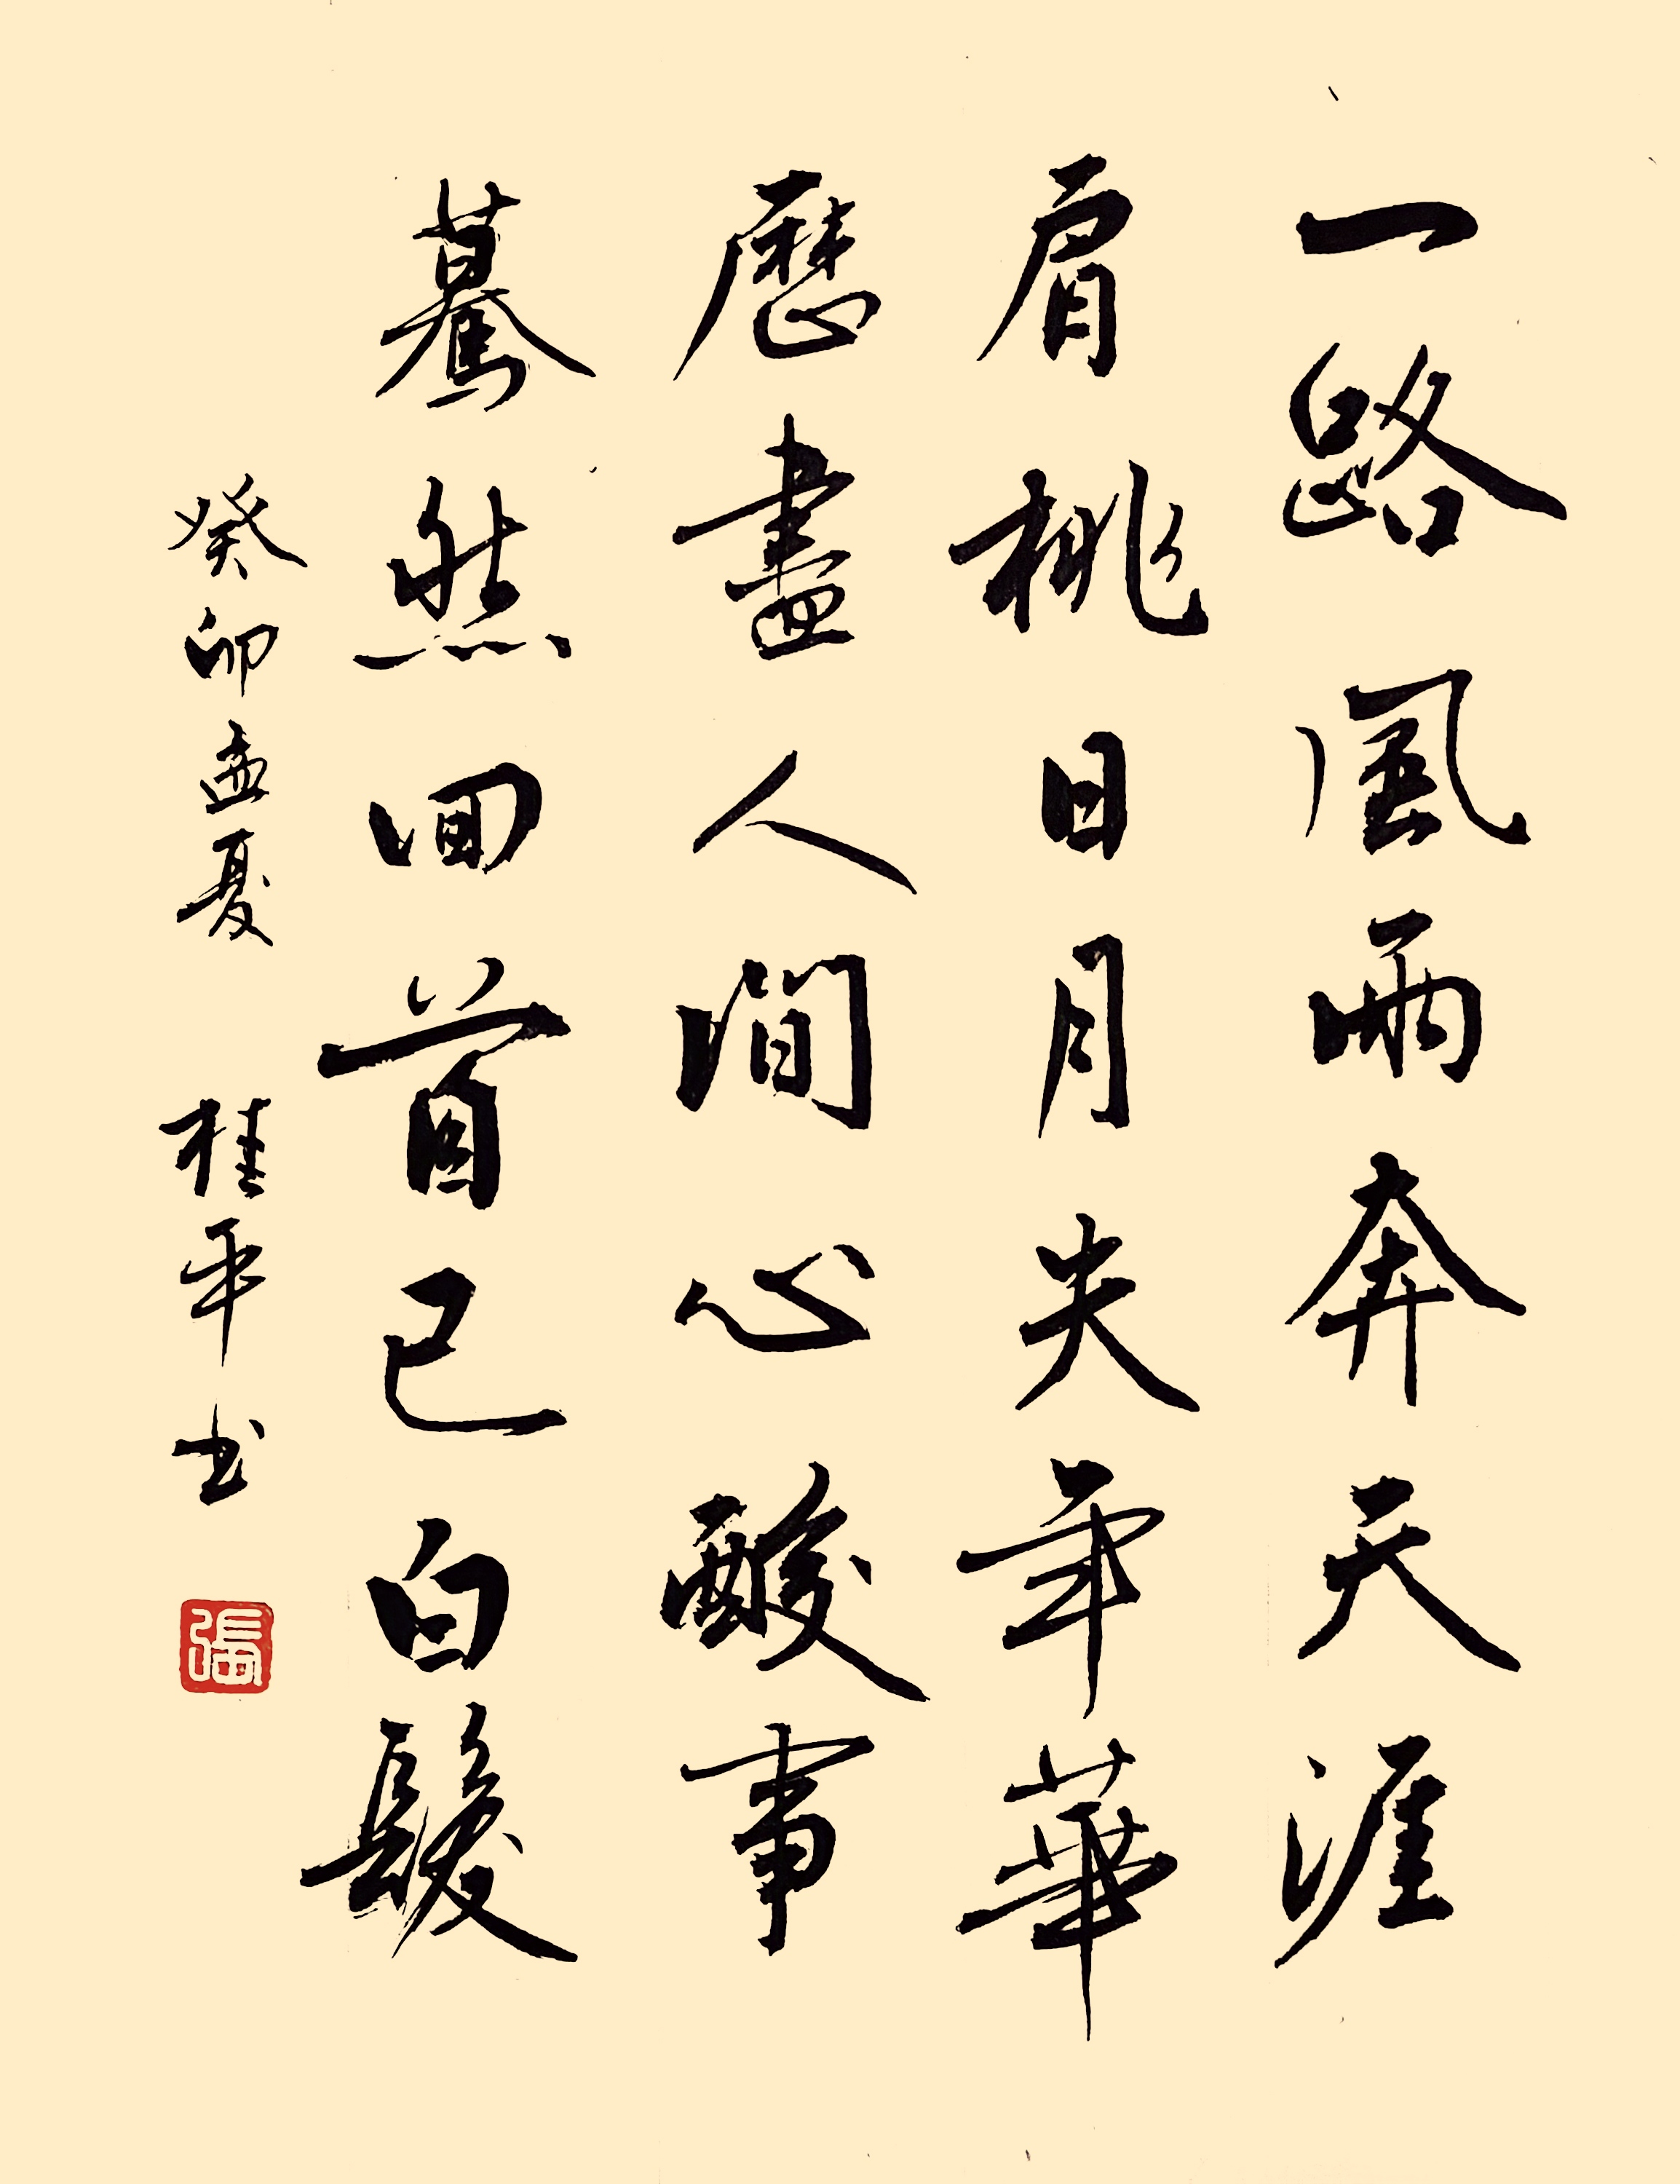 一路風雨奔天涯
肩挑日月失年華
歷盡人間心酸事
驀然回首已白髮
癸卯孟夏 桂平书
張